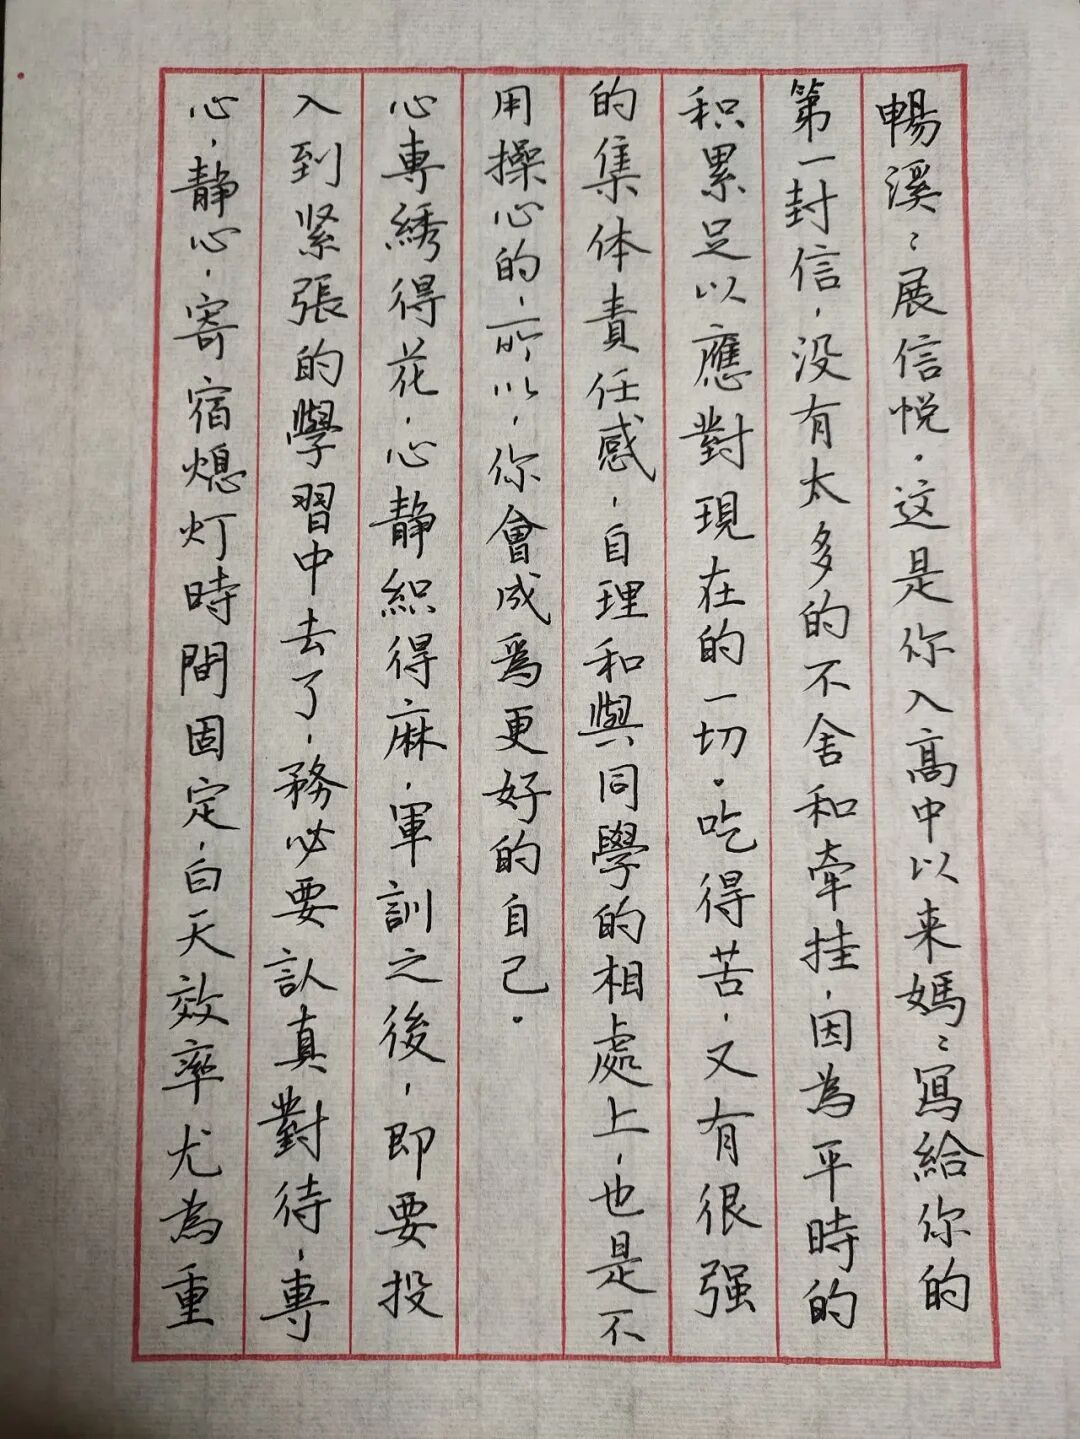 暢溪：展信悦。这是你入高中以来媽：寫給你的
第一封信，没有太多的不舍和牽挂，因為平時的
积累足以應對現在的一切。吃得苦，又有很强
的集体責任感，自理和與同學的相處上，也是不
用操心的，所以，你會成爲更好的自己。
心專綉得花，心静織得麻，軍訓之後，即要投
入到紧張的學習中去了，務必要認真對待，專
心，静心，寄宿熄灯時間固定，白天效率尤為重